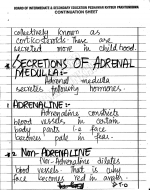 BOARD OF INTERMEDIATE & SECONDARY EDUCATION PESHAWAR KHYBER PAKHTUNKHWA
CONTINUATION SHEET
collectively known as
corticosteroids. These are
secreted more in childhood.
SECRETIONS OF ADRENAL
MEDULLA:-
Adrenal medulla
secretes following hormones.
ADRENALINE:-
Adrenaline, constricts
blood vessels in certain
body parts
face
becomes pale in fear.
2. Non-ADRENALINE
Non-Adrenaline dilates
blood vessels that is why
face becomes red in anger.
P-T-O